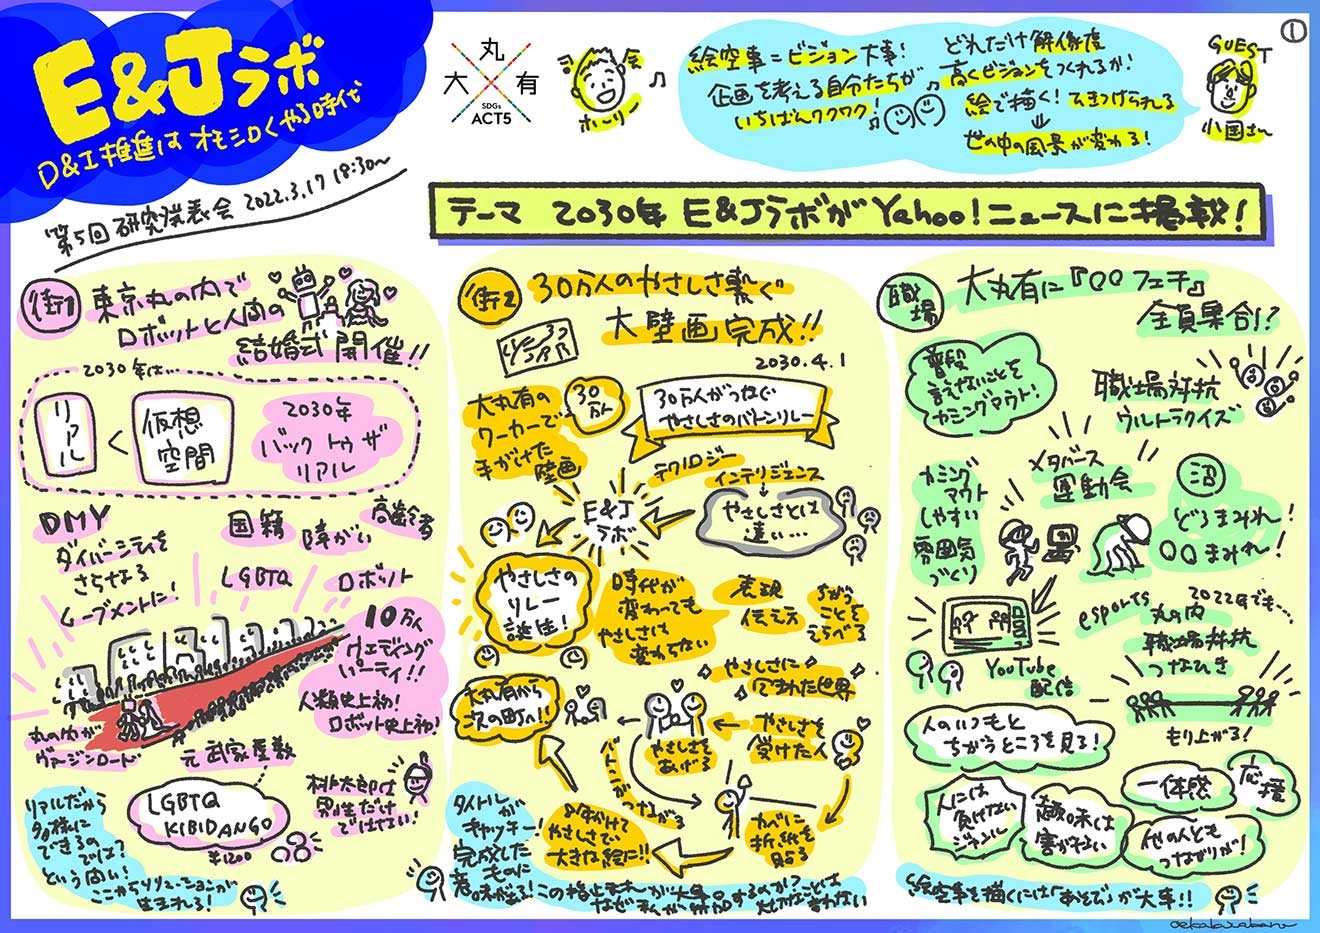 ①
E&Jラボ
D&I推進は オモシロくやる時代
第5回 研究発表会 2022.3.17 18:30〜
丸
大 有
SDGs
ACT5
ホーリー
絵空事=ビジョン大事!
企画を考える自分たちが
いちばんワクワク!
どれだけ解像度
高くビジョンをつくれるか!
絵で描く! ひきつけられる
世の中の風景が変わる!
GUEST
小国さん
テーマ 2030年 E&JラボがYahoo!ニュースに掲載!
街1
東京丸の内で
ロボットと人間の
結婚式開催!!
2030年は…
リアル
<
仮想
空間
2030年
バック トゥ ザ
リアル
DMY
ダイバーシティを
さらせなる
ムーブメントに!
国籍
障がい
高齢者
LGBTQ
ロボット
10万人
ウェディング
パーティ!!
人類史上初!
ロボット史上初!
丸の内が
ヴァージンロード
元武家屋敷
LGBTQ
KIBIDANGO
¥1200
桃太郎は
男性だけ
ではない!
リアルだから
多様に
できるの
では?
という問い!
ここからソリューションが
生まれる!
街2
30万人のやさしさ繋ぐ
大壁画完成!!
2030.4.1
大丸有の
ワーカーで
手がけた
壁画
30
万人
30万人がつなぐ
やさしさのバトンリレー
テクノロジー
インテリジェンス
E&J
ラボ
やさしさとは
遠い…
やさしさの
リレー
誕生!
時代が
変わっても
やさしさは
変わらない
表現
伝え方
ちがう
ことを
えらべる
やさしさに
包まれた世界
大丸有から
次の町へ!!
やさしさを
あげる
やさしさを
受けた人
バトンがつながる
8年かけて
やさしさで
大きな絵に!!
かべに
折り紙を
貼る
タイトルが
キャッチー!
完成した
ものに
意味が出る!
なぜ私が参加するのか?
職場
大丸有に『〇〇フェチ』
全員集合!?
普段
言えないことを
カミングアウト!
職場対抗
ウルトラクイズ
カミング
アウト
しやすい
雰囲気
づくり
メタバース
運動会
沼
どろまみれ!
〇〇まみれ!
esports
YouTube
配信
2022年でも…
丸の内
職場対抗
つなひき
もり上がる!
人のいつもと
ちがうところを見る!
人には
負けない
ジャンル
趣味は
害がない
一体感
応援
他の人とも
つながりが!
絵空事を描くには「あそび」が大事!!